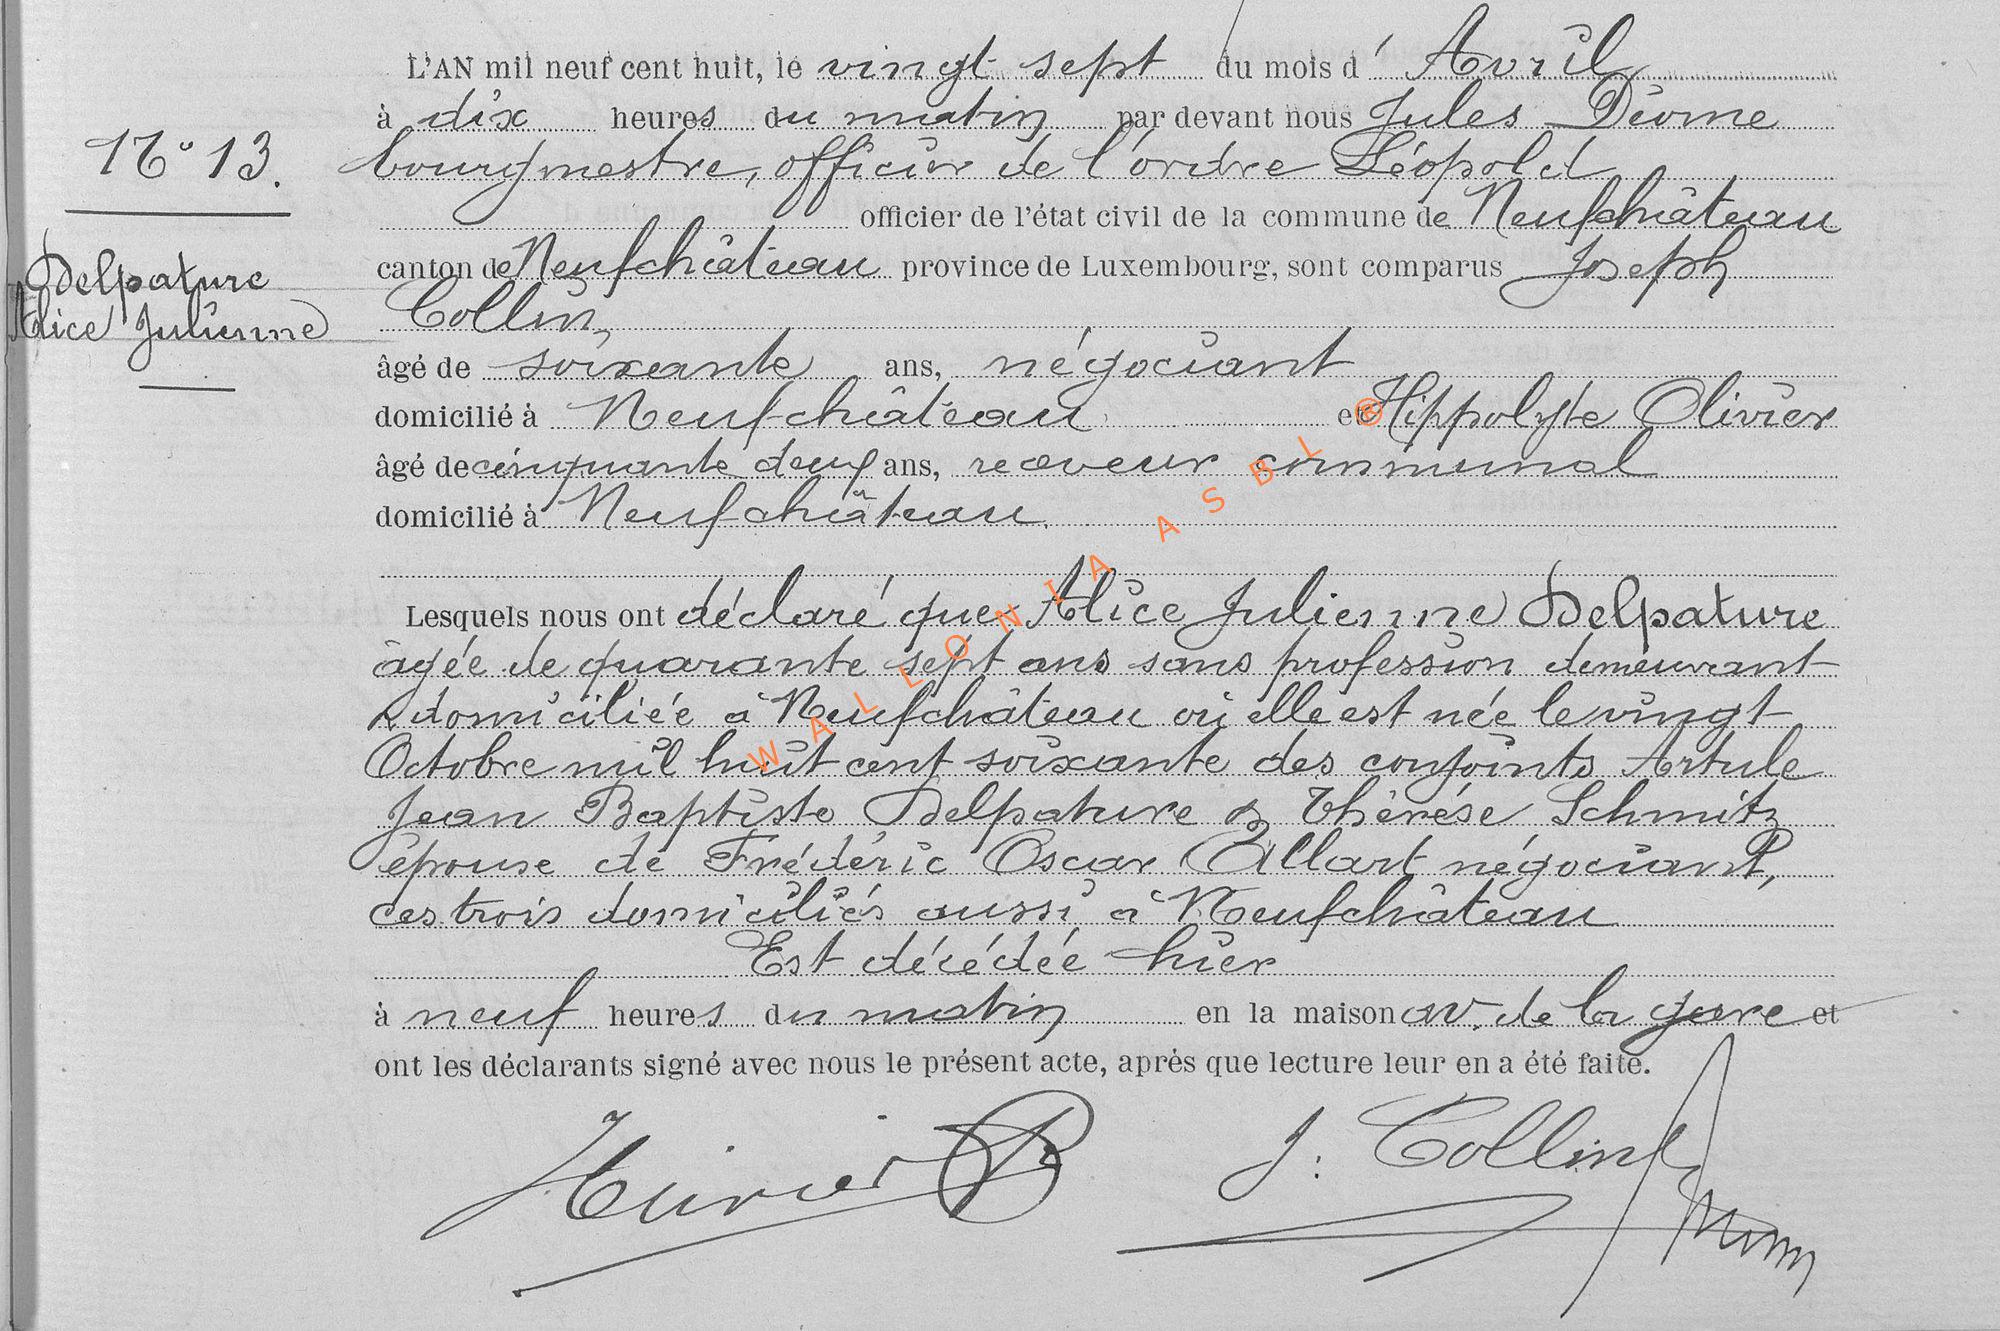 L'AN mil neuf cent huit, le vingt sept du mois d'Avril
à dix heures du matin par devant nous Jules
N° 13. bourgmestre, officier de l'ordre Léopold
officier de l'état civil de la commune de Neufchâteau
Delpature canton de Neufchâteau province de Luxembourg, sont comparus Joseph
Alice Julienne Collin,
âgé de soixante ans, négociant
domicilié à Neufchâteau et Hippolyte Olivier
âgé de cinquante deux ans, receveur communal
domicilié à Neufchâteau.
Lesquels nous ont déclaré que Alice Julienne Delpature
âgée de quarante sept ans sans profession demeurant
& domiciliée à Neufchâteau où elle est née le vingt
Octobre mil huit cent soixante des conjoints Artule
Jean Baptiste Delpature & Thérèse Schmitz
épouse de Frédéric Oscar Allart négociant,
ces trois domiciliés aussi à Neufchâteau
Est décédée hier
à neuf heures du matin en la maison av. de la gare et
ont les déclarants signé avec nous le présent acte, après que lecture leur en a été faite.
J. Collin
WALLONIA ASBL ®